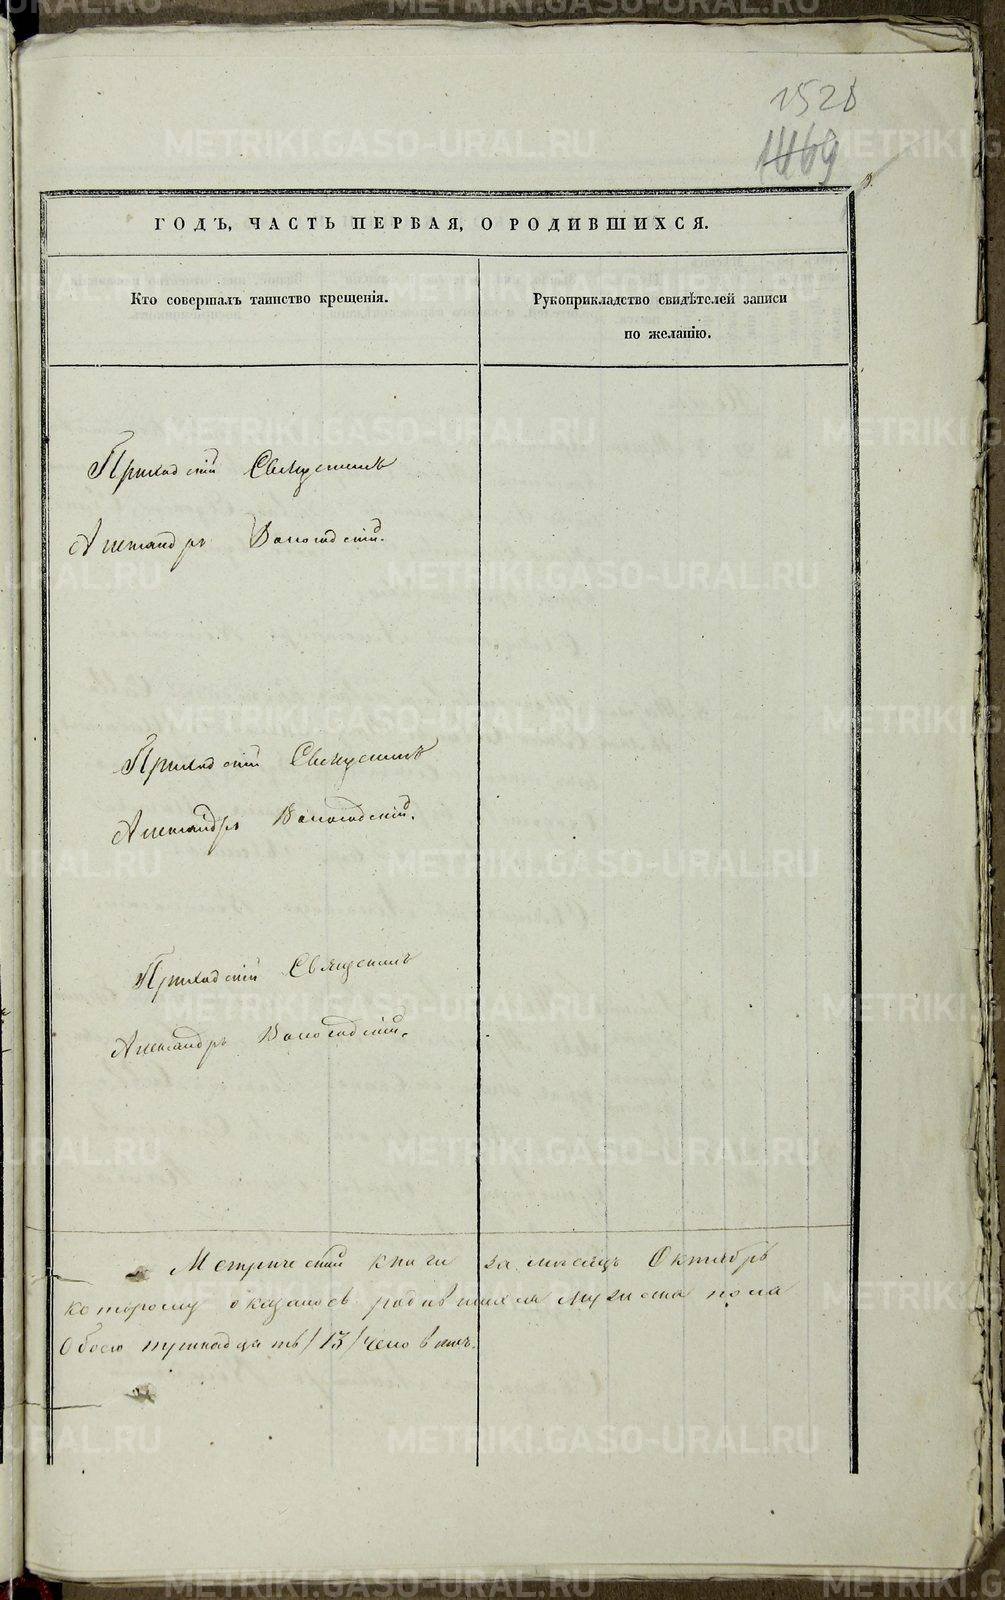 1528
1469
ГОДЪ, ЧАСТЬ ПЕРВАЯ, О РОДИВШИХСЯ.
Кто совершалъ таинство крещенія.
Рукоприкладство свидѣтелей записи
по желанію.
Приходскій Священникъ
Александръ Вологодскій.
Приходскій Священникъ
Александръ Вологодскій.
Приходскій Священникъ
Александръ Вологодскій.
книги за мѣсяцъ Октябрь
которому оказалось родившихся мужеска пола
Обоего тринадцать /13/ человѣкъ.
METRIKI.GASO-URAL.RU